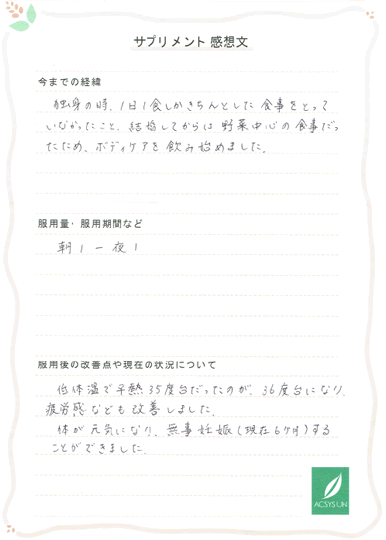 サプリメント 感想文
今までの経緯
独身の時、1日1食しかきちんとした食事をとって
いなかったこと、結婚してからは野菜中心の食事だっ
たため、ボディケアを飲み始めました。
服用量・服用期間など
朝1 ー 夜1
服用後の改善点や現在の状況について
低体温で平熱35度台だったのが、36度台になり、
疲労感なども改善しました。
体が元気になり、無事妊娠(現在6ヶ月)する
ことができました。
ACSYSIJN